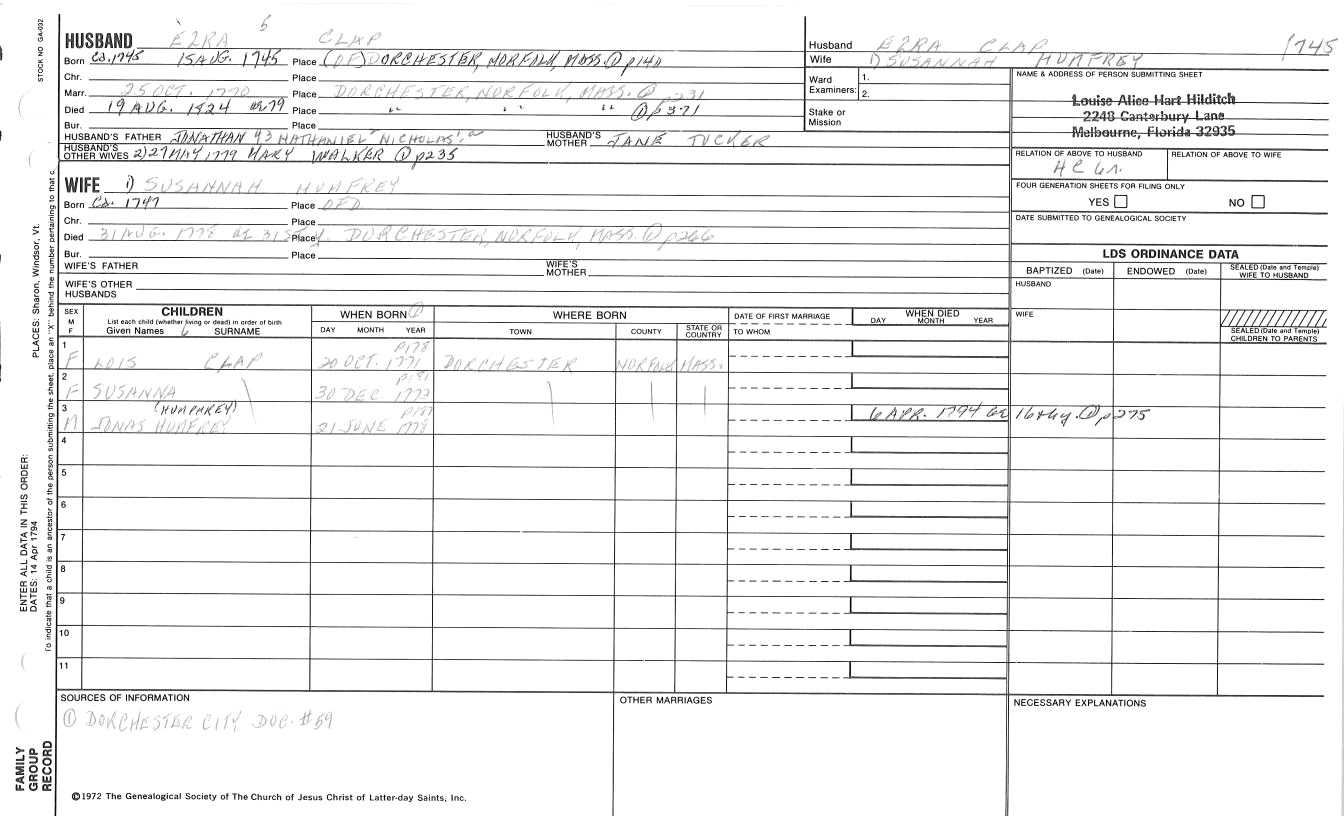 STOCK NO. GA-032
5
HUSBAND EZRA CLAP
Born Ca. 1745 15 AUG. 1745 Place (OF) DORCHESTER, NORFOLK, MASS. ① p140
Chr. Place
Marr. 25 OCT. 1770 Place DORCHESTER, NORFOLK, MASS. ① p231
Died 19 AUG. 1824 ae 79 Place " " " ① p371
Bur. Place
HUSBAND'S FATHER JONATHAN NATHANIEL NICHOLAS HUSBAND'S MOTHER JANE TUCKER
HUSBAND'S OTHER WIVES 2) 27 MAY 1779 MARY WALKER ① p235
WIFE 1) SUSANNAH HUMFREY
Born Ca. 1747 Place OFD
Chr. Place
Died 31 AUG. 1778 ae 31st y. Place DORCHESTER, NORFOLK, MASS. ① p266
Bur. Place
WIFE'S FATHER WIFE'S MOTHER
WIFE'S OTHER HUSBANDS
Husband EZRA CLAP 1745
Wife 1) SUSANNAH HUMFREY
Ward Examiners: 1.
2.
Stake or Mission
NAME & ADDRESS OF PERSON SUBMITTING SHEET
Louise Alice Hart Hilditch
2248 Canterbury Lane
Melbourne, Florida 32935
RELATION OF ABOVE TO HUSBAND RELATION OF ABOVE TO WIFE
FOUR GENERATION SHEETS FOR FILING ONLY
YES NO
DATE SUBMITTED TO GENEALOGICAL SOCIETY
LDS ORDINANCE DATA
BAPTIZED (Date) ENDOWED (Date) SEALED (Date and Temple) WIFE TO HUSBAND
HUSBAND
WIFE
SEALED (Date and Temple) CHILDREN TO PARENTS
SEX M F
CHILDREN
List each child (whether living or dead) in order of birth
Given Names SURNAME
WHEN BORN ①
DAY MONTH YEAR
WHERE BORN
TOWN COUNTY STATE OR COUNTRY
DATE OF FIRST MARRIAGE
TO WHOM
WHEN DIED
DAY MONTH YEAR
1 p178
F LOIS CLAP 20 OCT. 1771 DORCHESTER NORFOLK MASS.
2 p181
F SUSANNA 30 DEC 1773
3 (HUMPHREY) p187 6 APR. 1794 ae 16th y. ① p275
M JONAS HUMFREY 21 JUNE 1778
4
5
6
7
8
9
10
11
SOURCES OF INFORMATION
① DORCHESTER CITY DOC. #59
OTHER MARRIAGES
NECESSARY EXPLANATIONS
©1972 The Genealogical Society of The Church of Jesus Christ of Latter-day Saints, Inc.
FAMILY GROUP RECORD
ENTER ALL DATA IN THIS ORDER:
DATES: 14 Apr 1794
PLACES: Sharon, Windsor, Vt.
To indicate that a child is an ancestor of the person submitting the sheet, place an "X" behind the number pertaining to that c